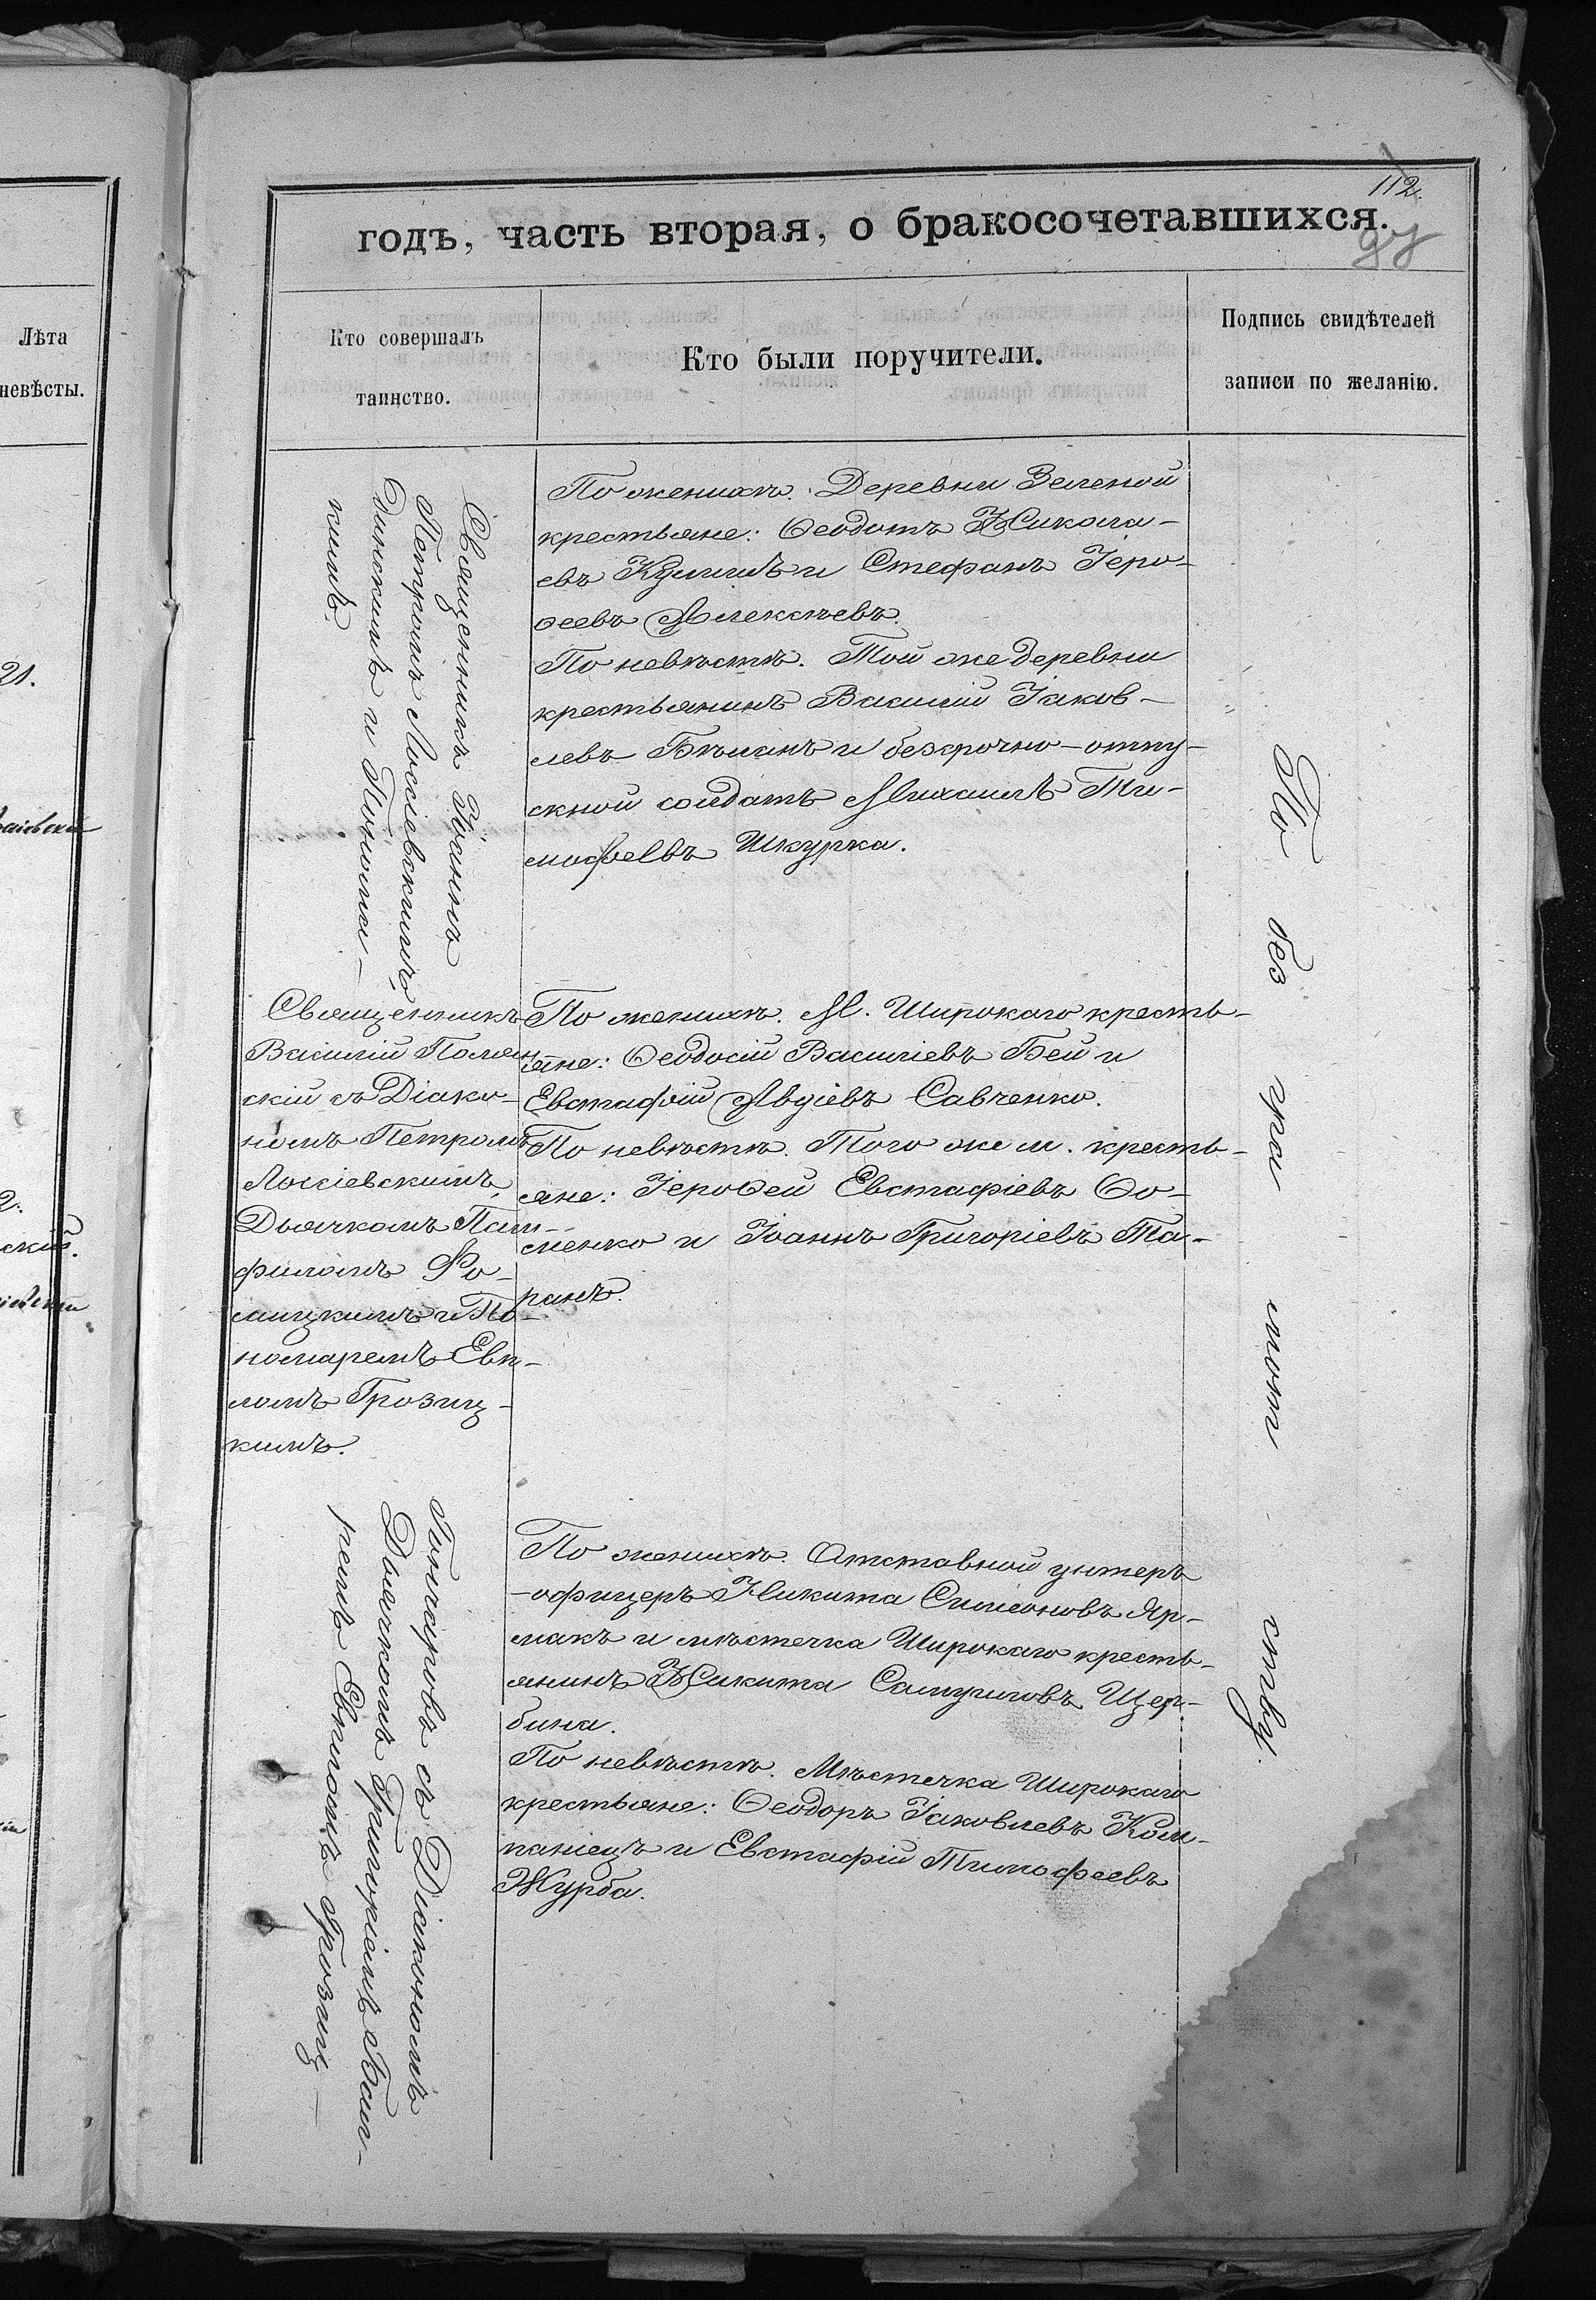 112.
годъ, часть вторая, о бракосочетавшихся.
Лѣта
невѣсты.
Кто совершалъ
таинство.
Кто были поручители.
Подпись свидѣтелей
записи по желанію.
21.
Священникъ Іоаннъ
Петромъ Лоссіевскимъ,
кимъ.
По женихѣ. Деревни Зеленой
крестьяне: Ѳеодотъ Никола-
евъ и Стефанъ Іеро-
ѳеевъ Алексѣевъ.
По невѣстѣ. Той же деревни
крестьянинъ Василій Іаков-
левъ Бѣланъ и безсрочно-отпу-
скной солдатъ Михаилъ Ти-
мофеевъ Шкурка.
Священникъ
Василій
скій съ Діако-
номъ Петромъ
Лоссіевскимъ,
Дьячкомъ Пам-
филомъ Ро-
мицкимъ и По-
номаремъ Евп-
ломъ Грозиц-
кимъ.
По женихѣ. М. Широкаго кресть-
яне: Ѳеодосій Василіевъ Бей и
Евстафій Авдіевъ Савченко.
По невѣстѣ. Того же м. кресть-
яне: Іероѳей Евстафіевъ Ѳо-
менко и Іоаннъ Григоріевъ Та-
ранъ.
съ Діакономъ
Дьячкомъ Григоріемъ
ремъ Евпломъ Грозиц-
По женихѣ. Отставной унтеръ
-офицеръ Никита Симеоновъ Яр-
макъ и мѣстечка Широкаго кресть-
янинъ Никита Самуиловъ Щер-
бина.
По невѣстѣ. Мѣстечка Широкаго
крестьяне: Ѳеодоръ Іаковлевъ Ком-
паніецъ и Евстафій Тимофеевъ
Журба.
По без гра мот ству.